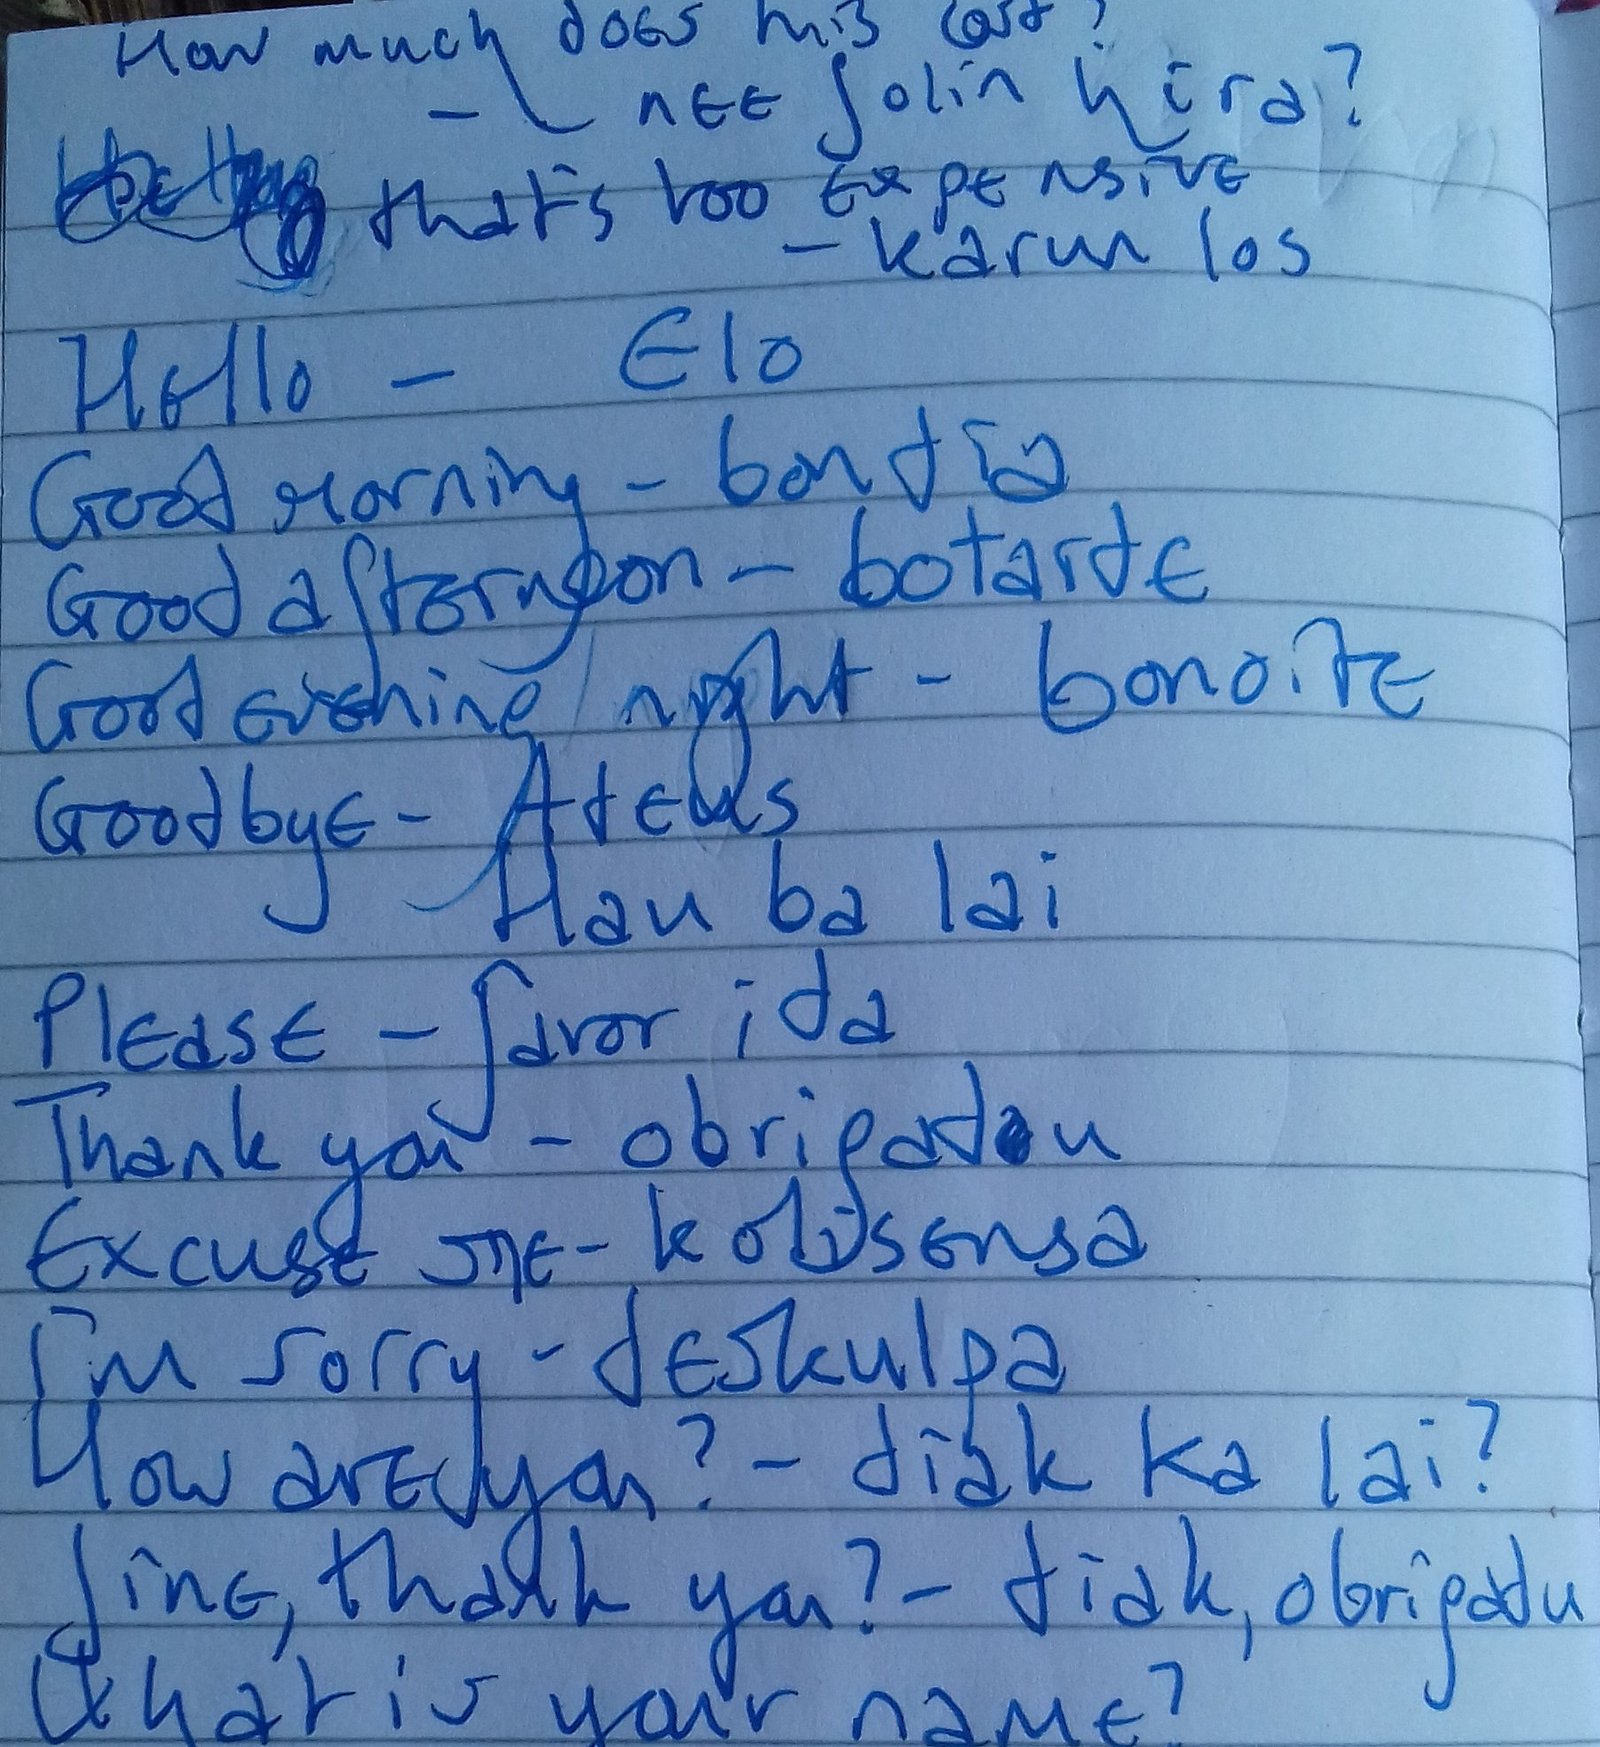 How much does this cost?
- nee folin hira?
that's too expensive
- karun los
Hello - Elo
Good morning - bondia
Good afternoon - botarde
Good evening/night - bonoite
Goodbye - Adeus
Hau ba lai
Please - favor ida
Thank you - obrigadu
Excuse me - kolisensa
I'm sorry - deskulpa
How are you? - diak ka lai?
fine, thank you? - diak, obrigadu
What is your name?